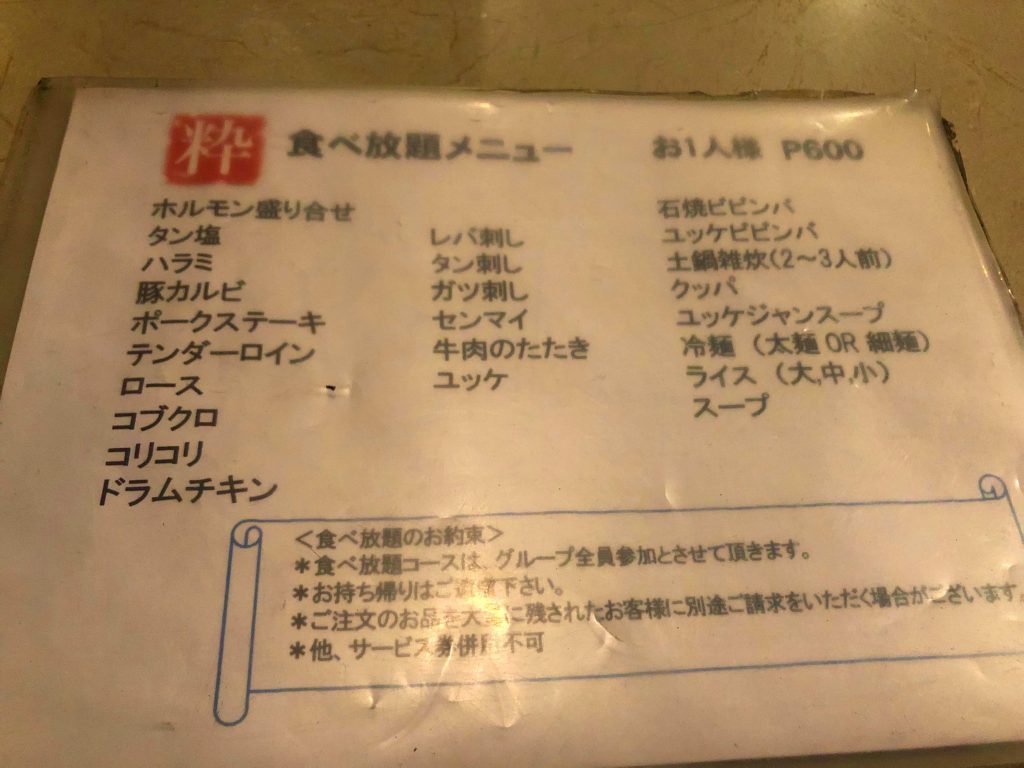 粋 食べ放題メニュー お1人様 P600
ホルモン盛り合せ
タン塩
ハラミ
豚カルビ
ポークステーキ
テンダーロイン
ロース
コブクロ
コリコリ
ドラムチキン
レバ刺し
タン刺し
ガツ刺し
センマイ
牛肉のたたき
ユッケ
石焼ビビンバ
ユッケビビンバ
土鍋雑炊(2～3人前)
クッパ
ユッケジャンスープ
冷麺 (太麺 OR 細麺)
ライス (大,中,小)
スープ
＜食べ放題のお約束＞
＊食べ放題コースは、グループ全員参加とさせて頂きます。
＊お持ち帰りはご遠慮下さい。
＊ご注文のお品を大量に残されたお客様に別途ご請求をいただく場合がございます。
＊他、サービス券併用不可